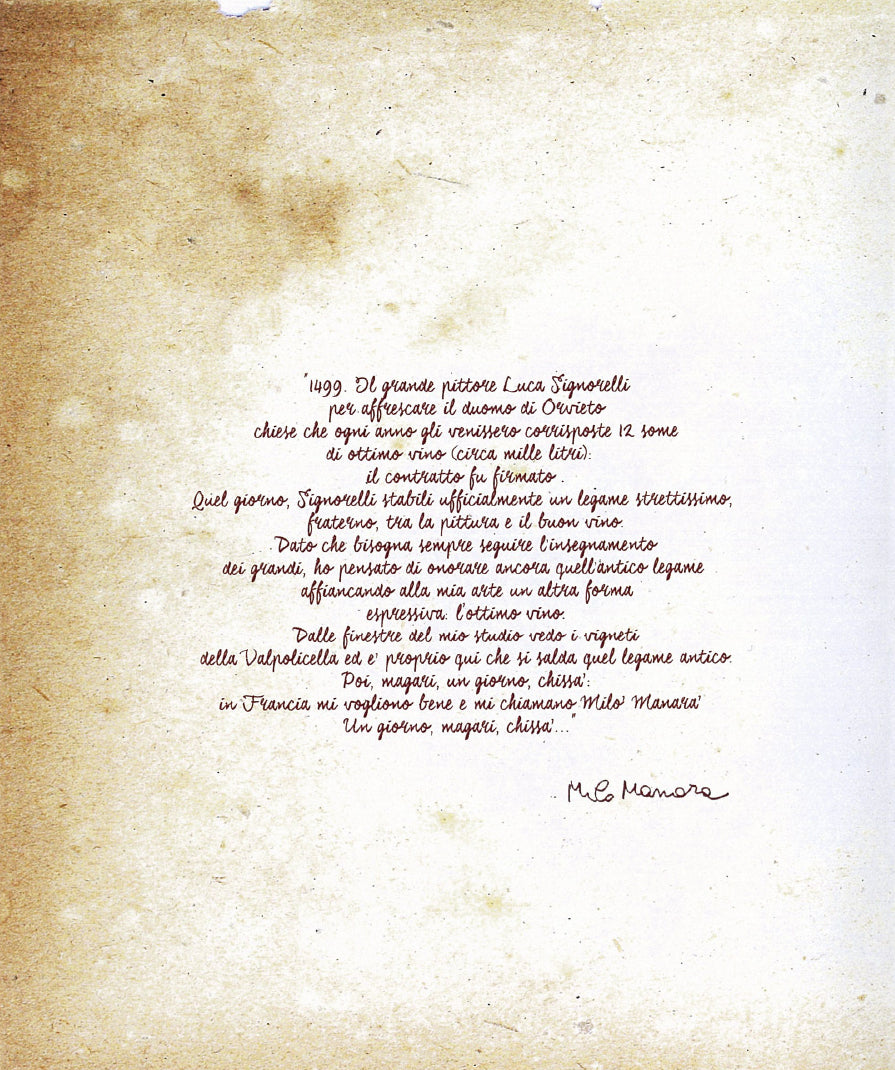 "1499. Il grande pittore Luca Signorelli
per affrescare il duomo di Orvieto
chiese che ogni anno gli venissero corrisposte 12 some
di ottimo vino (circa mille litri):
il contratto fu firmato .
Quel giorno, Signorelli stabilì ufficialmente un legame strettissimo,
fraterno, tra la pittura e il buon vino.
Dato che bisogna sempre seguire l'insegnamento
dei grandi, ho pensato di onorare ancora quell'antico legame
affiancando alla mia arte un altra forma
espressiva: l'ottimo vino.
Dalle finestre del mio studio vedo i vigneti
della Valpolicella ed e' proprio qui che si salda quel legame antico.
Poi, magari, un giorno, chissa':
in Francia mi vogliono bene e mi chiamano Milo' Manara'
Un giorno, magari, chissa'..."
Milo Manara